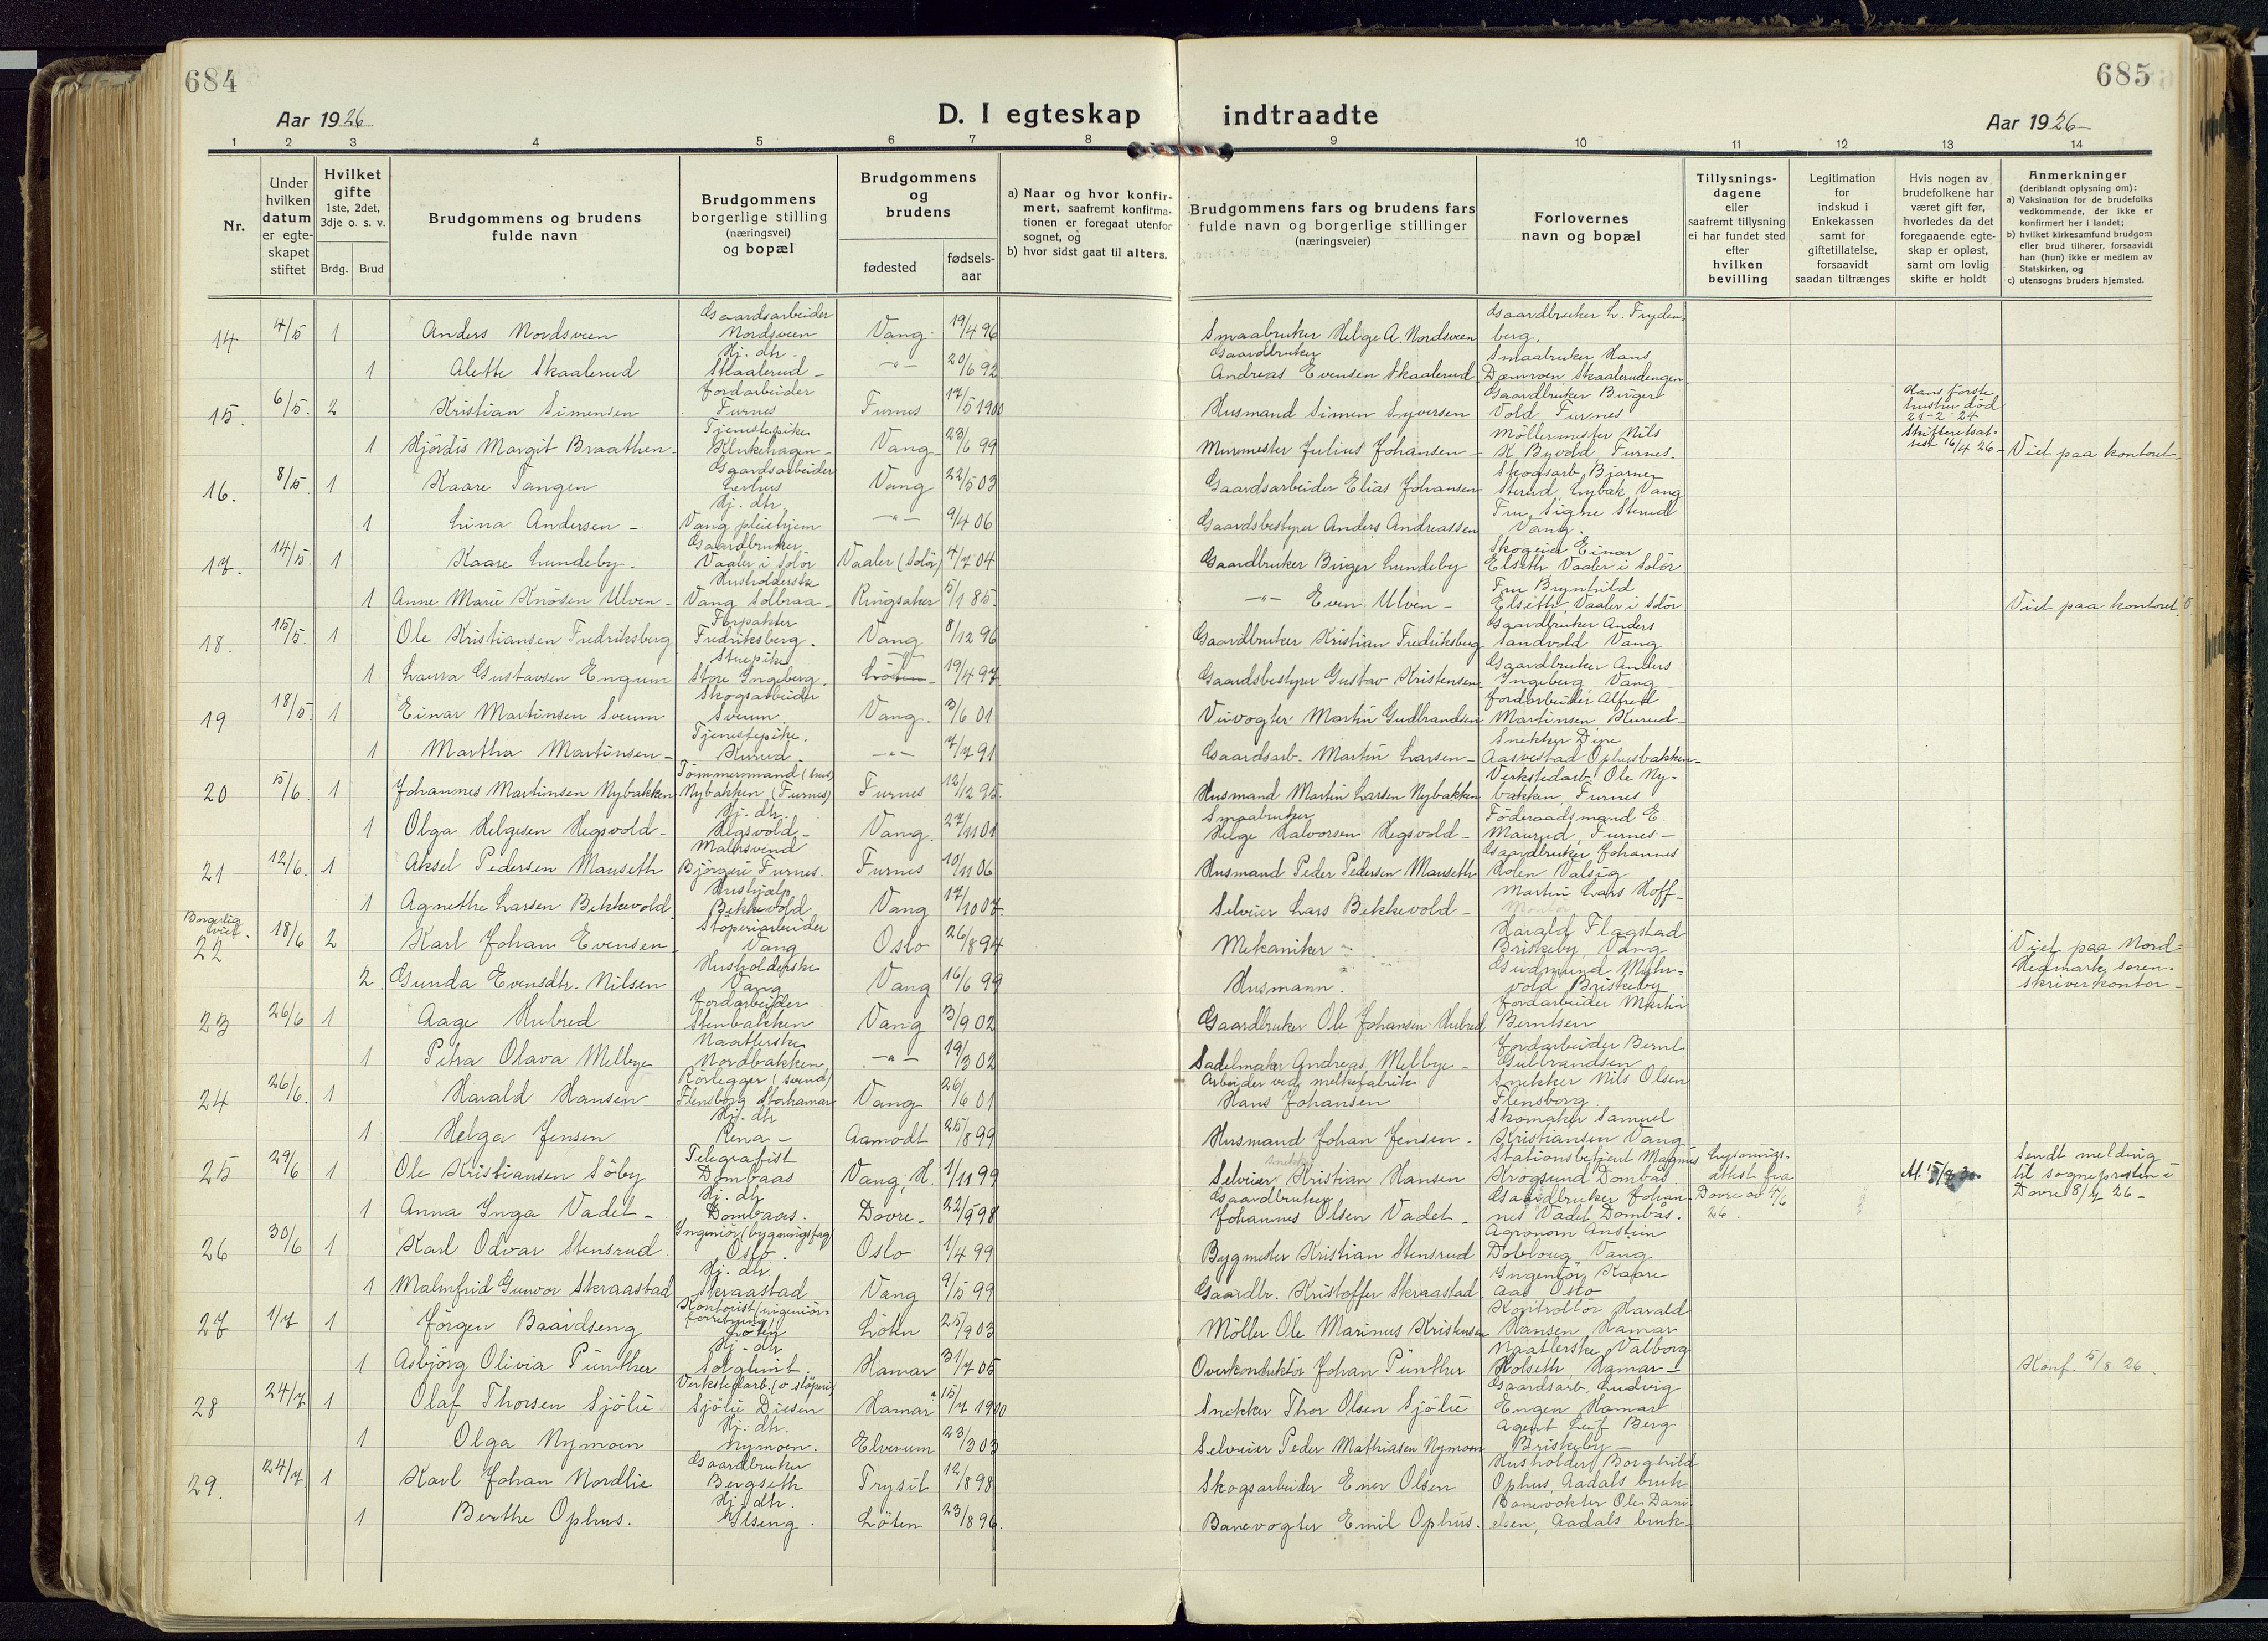 684
685
Aar 1926
D. I egteskap indtraadte
Aar 1926
1 2 3 4 5 6 7 8 9 10 11 12 13 14
Nr.
Under hvilken datum er egteskapet stiftet
Hvilket gifte 1ste, 2det, 3dje o. s. v.
Brdg. Brud
Brudgommens og brudens fulde navn
Brudgommens borgerlige stilling (næringsvei) og bopæl
Brudgommens og brudens
fødested
fødselsaar
a) Naar og hvor konfirmert, saafremt konfirmationen er foregaat utenfor sognet, og
b) hvor sidst gaat til alters.
Brudgommens fars og brudens fars fulde navn og borgerlige stillinger (næringsveier)
Forlovernes navn og bopæl
Tillysningsdagene eller saafremt tillysning ei har fundet sted efter hvilken bevilling
Legitimation for indskud i Enkekassen samt for giftetillatelse, forsaavidt saadan tiltrænges
Hvis nogen av brudefolkene har været gift før, hvorledes da det foregaaende egteskap er opløst, samt om lovlig skifte er holdt
Anmerkninger (deriblandt oplysning om):
a) Vaksination for de brudefolks vedkommende, der ikke er konfirmert her i landet;
b) hvilket kirkesamfund brudgom eller brud tilhører, forsaavidt han (hun) ikke er medlem av Statskirken, og
c) utensogns bruders hjemsted.
14 4/5 1 Anders Nordsveen Gaardsarbeider Nordsveen Vang 19/4 96 Smaabruker Helge A. Nordsveen Gaardbruker L. Frydenberg.
1 Alette Skaalerud Hj. dtr. Skaalerud - " - 20/6 92 Gaardbruker Andreas Evensen Skaalerud Smaabruker Hans Dæmroen, Skaalerudengen
15. 6/5. 2 Kristian Simensen Jordarbeider Furnes Furnes 17/5 1900 Husmand Simen Syversen Gaardbruker Birger Vold Furnes Hans første hustru död 21-2-24 Skifteretsattest 16/4 26
1 Hjördis Margit Braathen Tjenestepike Klukehagen Vang 23/6 99 Murmester Julius Johansen Möllermester Nils K. Byvold, Furnes. Viet paa kontoret.
16. 8/5. 1 Kaare Tangen Gaardsarbeider Lerhus Vang 22/5 03 Gaardsarbeider Elias Johansen Skogsarb. Bjarne Sterud, Lybak, Vang
1 Lina Andersen Hj. dtr. Vang pleiehjem - " - 9/4 06 Gaardsbestyrer Anders Andreassen Fru Signe Sterud Vang.
17. 14/5. 1 Kaare Lundeby Gaardbruker Vaaler i Solör Vaaler (Solör) 4/7 04 Gaardbruker Birger Lundeby Skogeier Einar Elseth Vaaler i Solör
1 Anne Marie Knösen Ulven Husholderske Vang Solbraa Ringsaker 5/1 85. - " - Even Ulven Fru Brynhild Elseth, Vaaler i Solör Viet paa kontoret.
18. 15/5. 1 Ole Kristiansen Fredriksberg Forpakter Fredriksberg. Vang 8/12 96 Gaardbruker Kristian Fredriksberg Gaardbruker Anders Sandvold Vang
1 Laura Gustavsen Engum Stuepike Store Ingeberg. - " - Löten 19/4 97 Gaardsbestyrer Gustav Kristensen Gaardbruker Anders Ingeberg Vang
19 18/5. 1 Einar Martinsen Sveum Skogsarbeider Sveum Vang. 3/6 01 Veivogter Martin Gudbrandsen Jordarbeider Alfred Martinsen Kurud
1 Martha Martinsen Tjenestepike. Kurud - " - 7/7 91 Gaardsarb. Martin Larsen Snekker Dyre Aasvestad Ophusbakken
20 5/6. 1 Johannes Martinsen Nybakken Tömmermand (hus) Nybakken (Furnes) Furnes 12/12 95. Husmand Martin Larsen Nybakken Verkstedarb. Ole Nybakken, Furnes
1 Olga Helgesen Hegsvold Hj. dtr. Hegsvold Vang 27/11 01 Smaabruker Helge Halvorsen Hegsvold Föderaadsmand E. Maurud, Furnes
21 12/6. 1 Aksel Pedersen Mauseth Malersvend Björgeie Furnes. Furnes 10/11 06 Husmand Peder Pedersen Mauseth Gaardbruker Johannes Holen Valsig
1 Agnethe Larsen Bekkevold Hushjælp Bekkevold Vang 17/10 07. Selveier Lars Bekkevold Martin Lars Hoff
Borgerlig viet.
22 18/6 2 Karl Johan Evensen Stöperiarbeider Vang Oslo 26/8 94 Mekaniker Montör Harald Flagstad Briskeby, Vang
2. Gunda Evensdtr. Nilsen Husholderske Vang Vang 16/6 99 Husmann. Gudmund Myhrvold, Briskeby Viet paa Nord-Hedmark sorenskriverkontor
23 26/6 1 Aage Hubred Jordarbeider Stenbakken Vang 3/9 02 Gaardbruker Ole Johansen Hubred Jordarbeider Martin Berntsen
1 Petra Olava Melbye Naatlerske Nordbakken - " - 19/3 02 Sadelmaker Andreas Melbye Jordarbeider Bernt Gulbrandsen
24 26/6. 1 Harald Hansen Rörlegger (svend) Flensborg Storhamar Vang 26/6 01 Arbeider ved melkefabrik Hans Johansen Snekker Nils Olsen Flensborg.
1 Helga Jensen Hj. dtr Rena Aamodt 25/8 99 Husmand Johan Jensen. Skomaker Samuel Kristiansen Vang
25 29/6 1 Ole Kristiansen Söby Telegrafist Dombaas Vang, H. 1/11 99 Selveier snekker Kristian Hansen Stationsbetjent Magnus Krogsund Dombås Lysningsattest fra Dovre av 4/6 26. Sendt melding til sognepresten i Dovre 8/7 26
1 Anna Inga Vadet Hj. dtr Dombaas. Dovre 22/9 98 Gaardbruker Johannes Olsen Vadet Gaardbruker Johannes Vadet Dombås.
26 30/6 1 Karl Odvar Stensrud Ingeniör (bygningsfag) Oslo. Oslo 1/4 99 Bygmester Kristian Stensrud Agronom Anstein Dobloug, Vang
1 Malmfrid Gunvor Skraastad Hj. dtr. Skraastad Vang 9/5 99 Gaardbr. Kristoffer Skraastad Ingeniör Kaare Aas Oslo
27 1/7 1 Jörgen Baardseng Kontorist (ingeniörforretning) Löten Löten 25/9 03 Möller Ole Marinus Kristensen Kontrollör Harald Hansen, Hamar
1 Asbjörg Olivia Pünther Hj. dtr Solglimt. Hamar 31/7 05 Overkonduktör Johan Pünther Naatlerske Valborg Holseth Hamar Konf. 5/8 26.
28 24/7 1 Olaf Thorsen Sjölie Verkstedarb. (v. stöperi) Sjölie Disen Hamar 15/7 1900 Snekker Thor Olsen Sjölie Gaardsarb. Ludvig Engen Hamar
1 Olga Nymoen Hj. dtr. Nymoen. Elverum 23/3 03 Selveier Peder Mathiasen Nymoen Agent Leif Berg Briskeby
29. 24/7 1 Karl Johan Nordlie Gaardbruker Bergseth Trysil 12/1 898 Skogsarbeider Ener Olsen Husholder Borghild Ophus, Aadals bruk
1 Berthe Ophus. Hj. dtr. Ilseng. Löten 23/8 96. Banevogter Emil Ophus. Banevokter Ole Danielsen, Aadals bruk